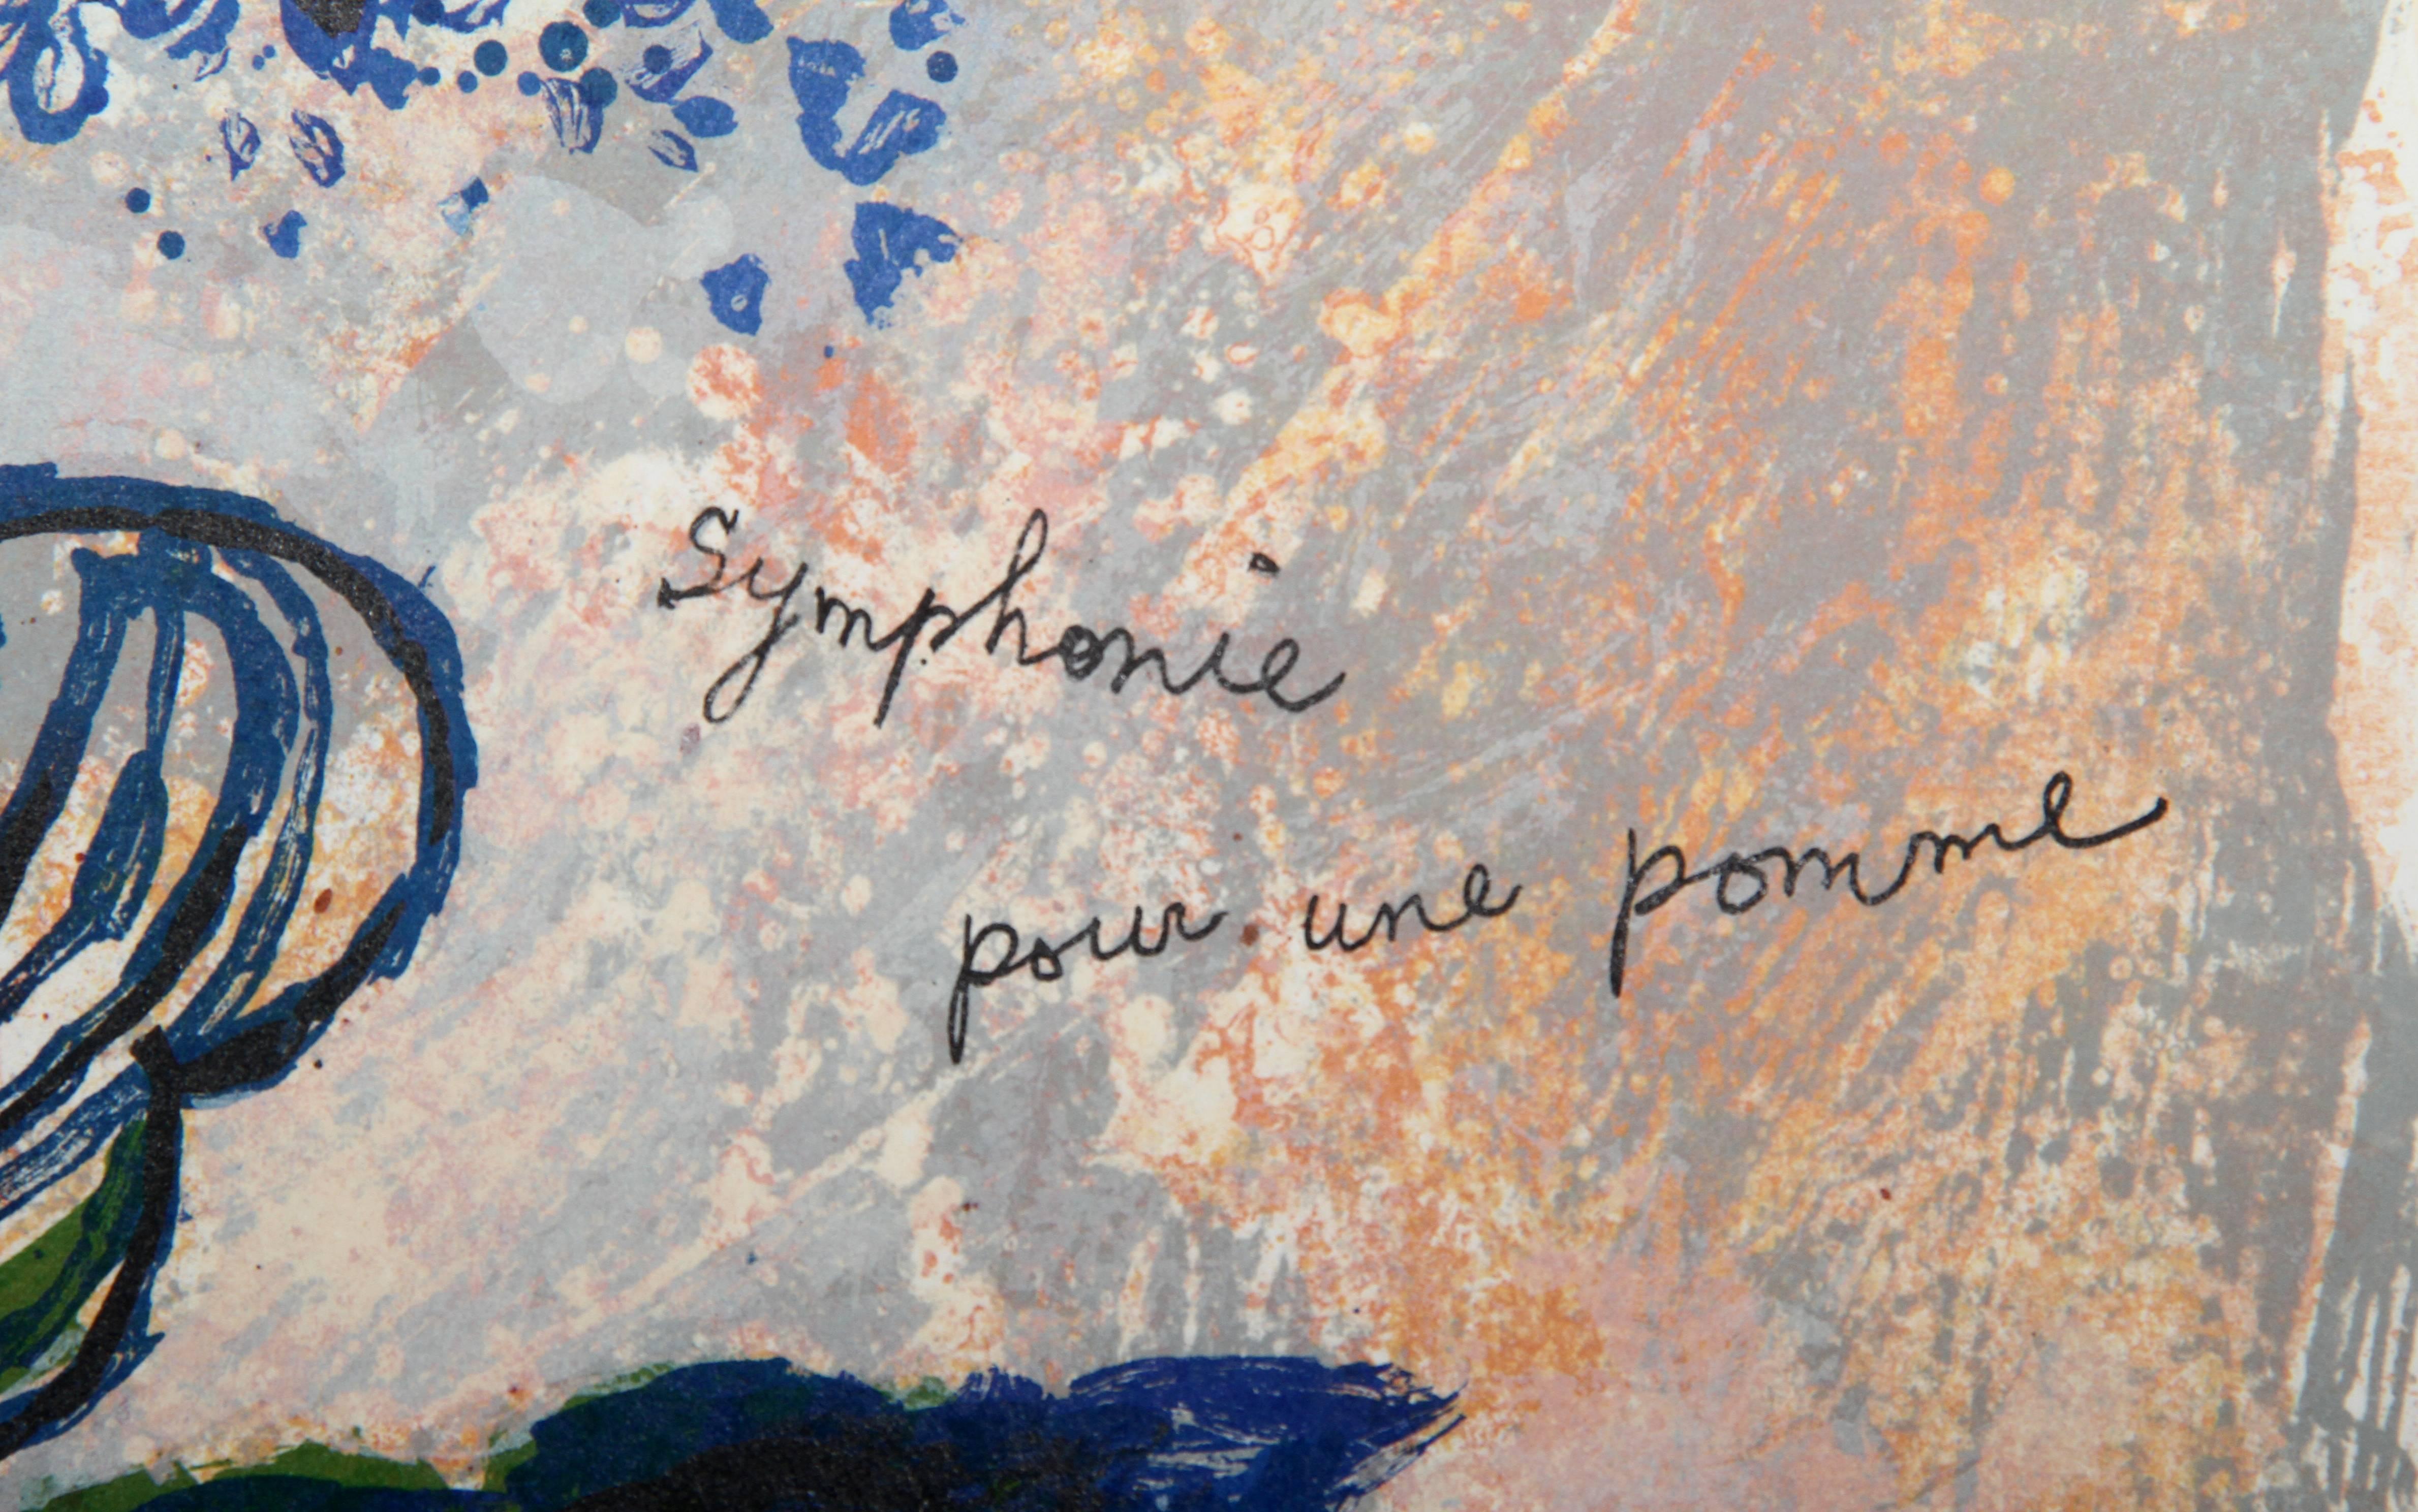 Symphonie
pour une pomme